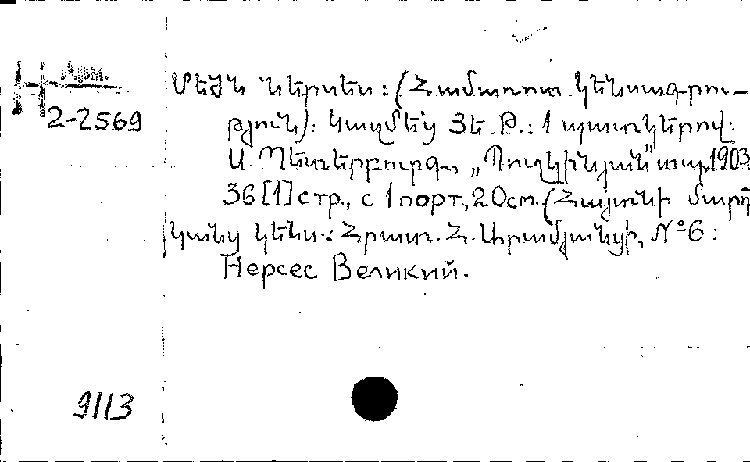 Арм.
2-2569
Մեծն Ներսես: (Համառոտ կենսագրու-
թյուն): Կազմեց Յե. Թ.: 1 պատկերով:
Ս. Պետերբուրգ, „Պուշկինյան" տպ. 1903
36 [1] стр., с 1 порт., 20см. (Հայտնի մարդ
կանց կենս.: Հրատ. Հ. Աբրահամյանցի, №6:
Нерсес Великий.
9113